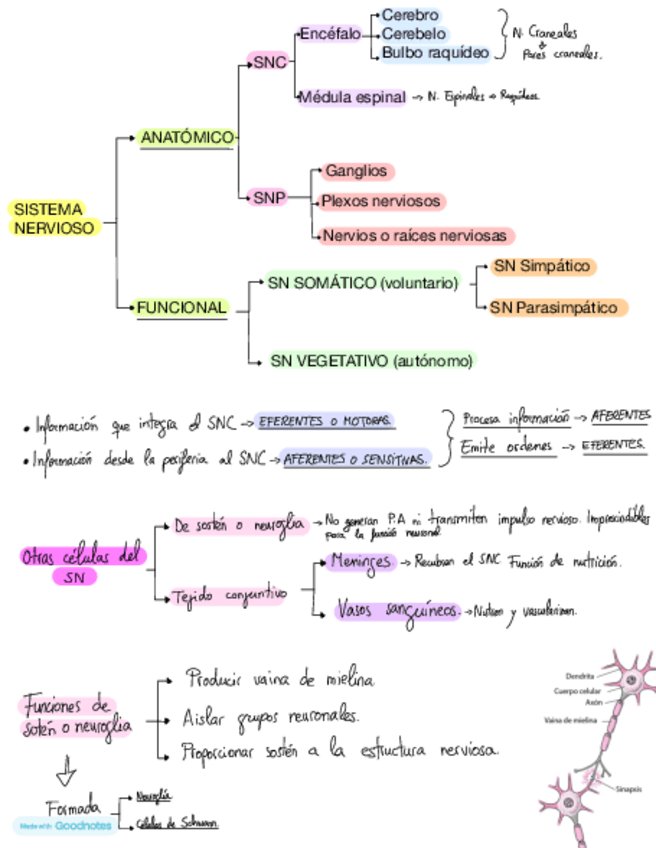 Cerebro
Encéfalo
Cerebelo
N. Craneales
Bulbo raquídeo
Pares craneales.
SNC
Médula espinal → N. Espinales → Raquídeos
ANATÓMICO
Ganglios
SNP
Plexos nerviosos
Nervios o raíces nerviosas
SISTEMA
NERVIOSO
SN Simpático
SN SOMÁTICO (voluntario)
FUNCIONAL
SN Parasimpático
SN VEGETATIVO (autónomo)
• Información que integra el SNC → EFERENTES O MOTORAS.
Procesa información → AFERENTES
Emite ordenes → EFERENTES.
• Información desde la periferia al SNC → AFERENTES O SENSITIVAS.
De sostén o neuroglia → No generan P.A ni transmiten impulso nervioso. Imprescindibles
para la función neuronal.
Otras células del
SN
Meninges → Recubren el SNC. Función de nutrición.
Tejido conjuntivo
Vasos sanguíneos. → Nutren y vascularizan.
Funciones de
sotén o neuroglia
Producir vaina de mielina
Aislar grupos neuronales.
Proporcionar sostén a la estructura nerviosa.
Formada
Neuroglía
Células de Schwann.
Made with Goodnotes
Dendrita
Cuerpo celular
Axón
Vaina de mielina
Sinapsis